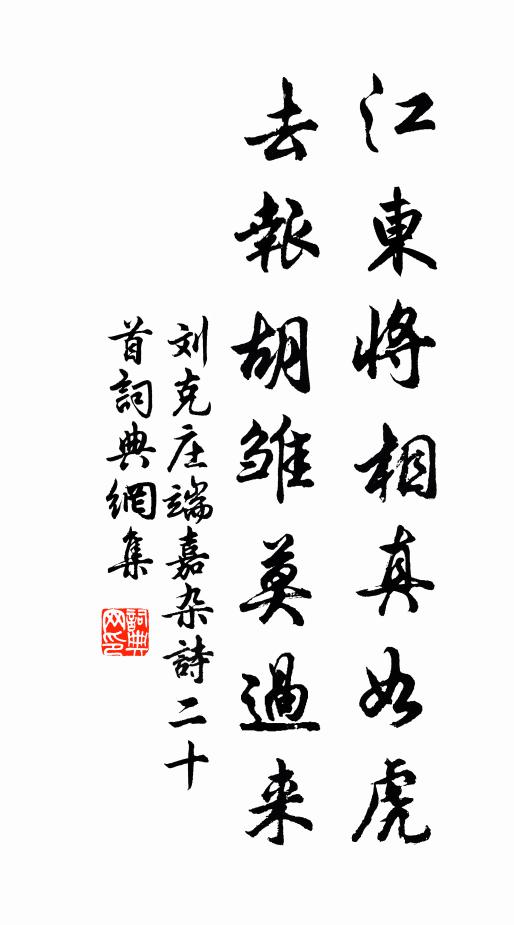 江東將相真如虎
去報胡雏莫過来
刘克庄端嘉杂詩二十
首詞典網集
詞典
网印